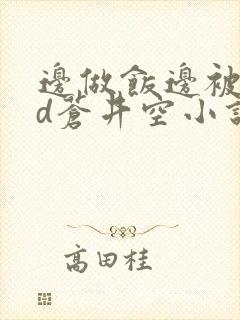 邊做飯邊被
d蒼井空小說
高田桂